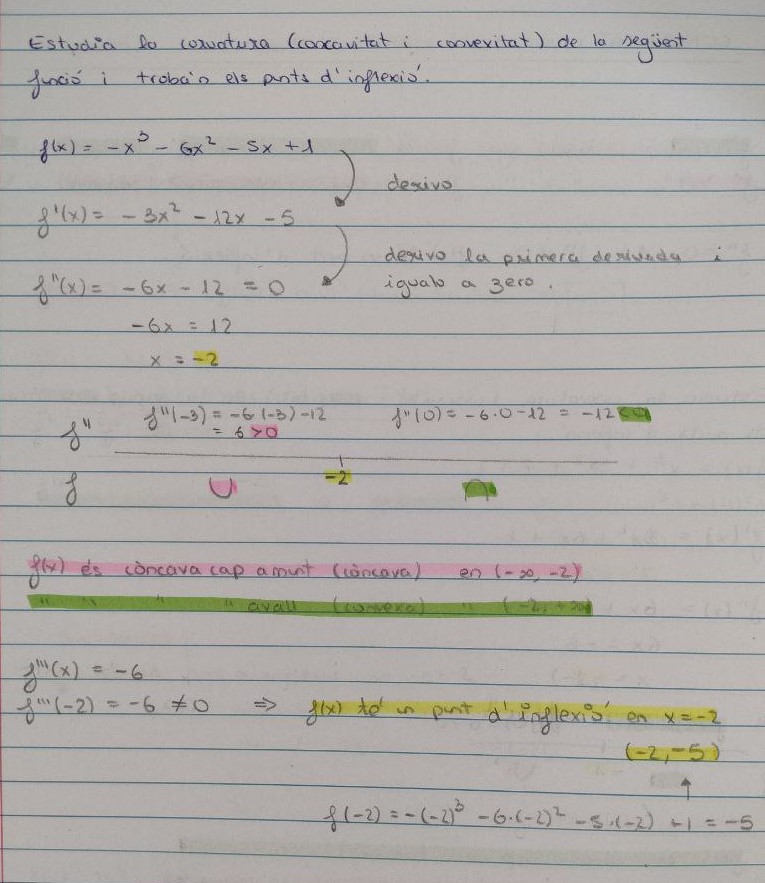 Estudia la curvatura (concavitat i convexitat) de la següent
funció i troba'n els punts d'inflexió.
f(x) = -x³ - 6x² - 5x + 1
derivo
f'(x) = -3x² - 12x - 5
derivo la primera derivada i
f''(x) = -6x - 12 = 0
igualo a zero.
-6x = 12
x = -2
f''(-3) = -6·(-3) -12 f''(0) = -6·0-12 = -12 <0
= 6 >0
f''
-2
f ∪ ∩
f(x) és còncava cap amunt (còncava) en (-∞, -2)
" " " " avall (convexa) " (-2, +∞)
f'''(x) = -6
f'''(-2) = -6 ≠ 0 ⇒ f(x) té un punt d'inflexió en x = -2
(-2, -5)
f(-2) = -(-2)³ - 6·(-2)² - 5·(-2) + 1 = -5